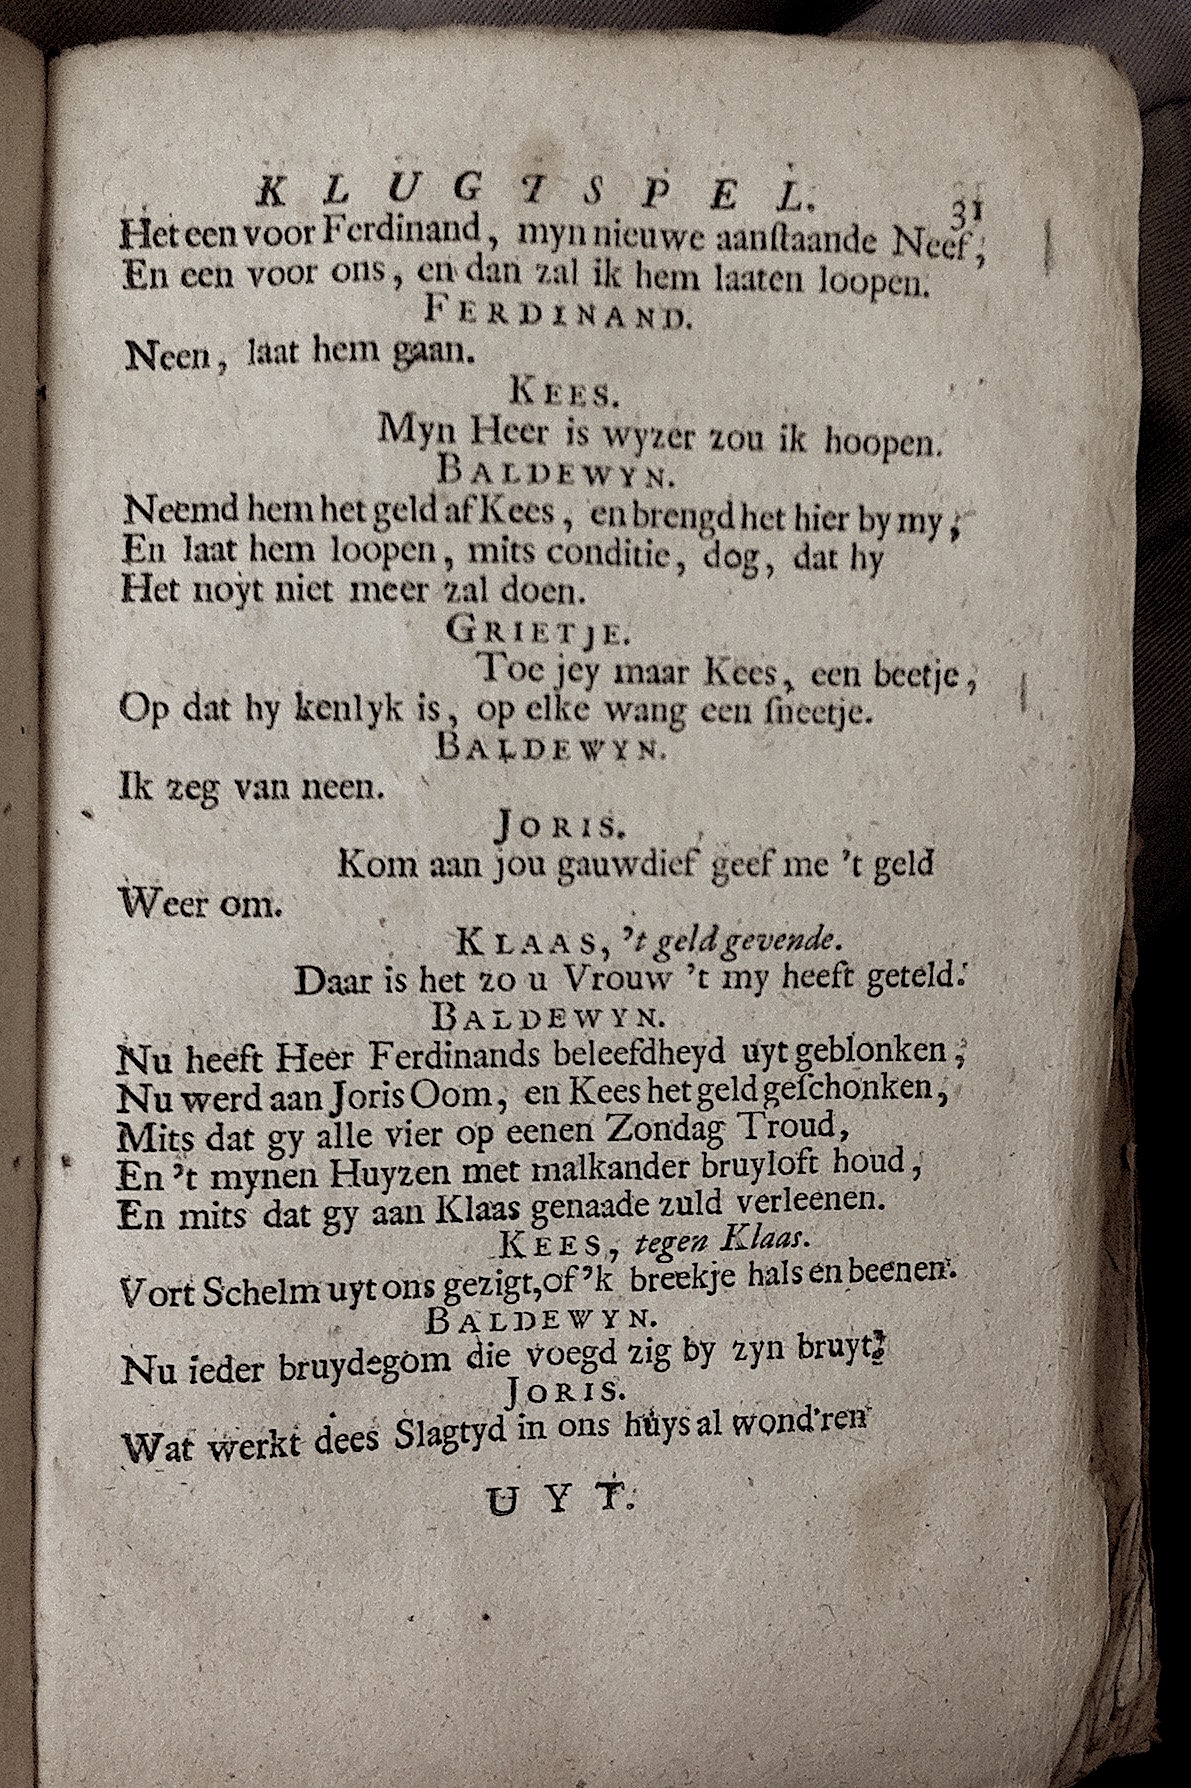 KLUGTSPEL. 31
Het een voor Ferdinand, myn nieuwe aanſtaande Neef;
En een voor ons, en dan zal ik hem laaten loopen.
FERDINAND.
Neen, laat hem gaan.
KEES.
Myn Heer is wyzer zou ik hoopen.
BALDEWYN.
Neemd hem het geld af Kees, en brengd het hier by my;
En laat hem loopen, mits conditie, dog, dat hy
Het noyt niet meer zal doen.
GRIETJE.
Toe jey maar Kees, een beetje,
Op dat hy kenlyk is, op elke wang een ſneetje.
BALDEWYN.
Ik zeg van neen.
JORIS.
Kom aan jou gauwdief geef me 't geld
Weer om.
KLAAS, 't geld gevende.
Daar is het zo u Vrouw 't my heeft geteld.
BALDEWYN.
Nu heeft Heer Ferdinands beleefdheyd uyt geblonken,
Nu werd aan Joris Oom, en Kees het geld geſchonken,
Mits dat gy alle vier op eenen Zondag Troud,
En 't mynen Huyzen met malkander bruyloft houd,
En mits dat gy aan Klaas genaade zuld verleenen.
KEES, tegen Klaas.
Vort Schelm uyt ons gezigt, of 'k breekje hals en beenen.
BALDEWYN.
Nu ieder bruydegom die voegd zig by zyn bruyt.
JORIS.
Wat werkt dees Slagtyd in ons huys al wond'ren
UYT.